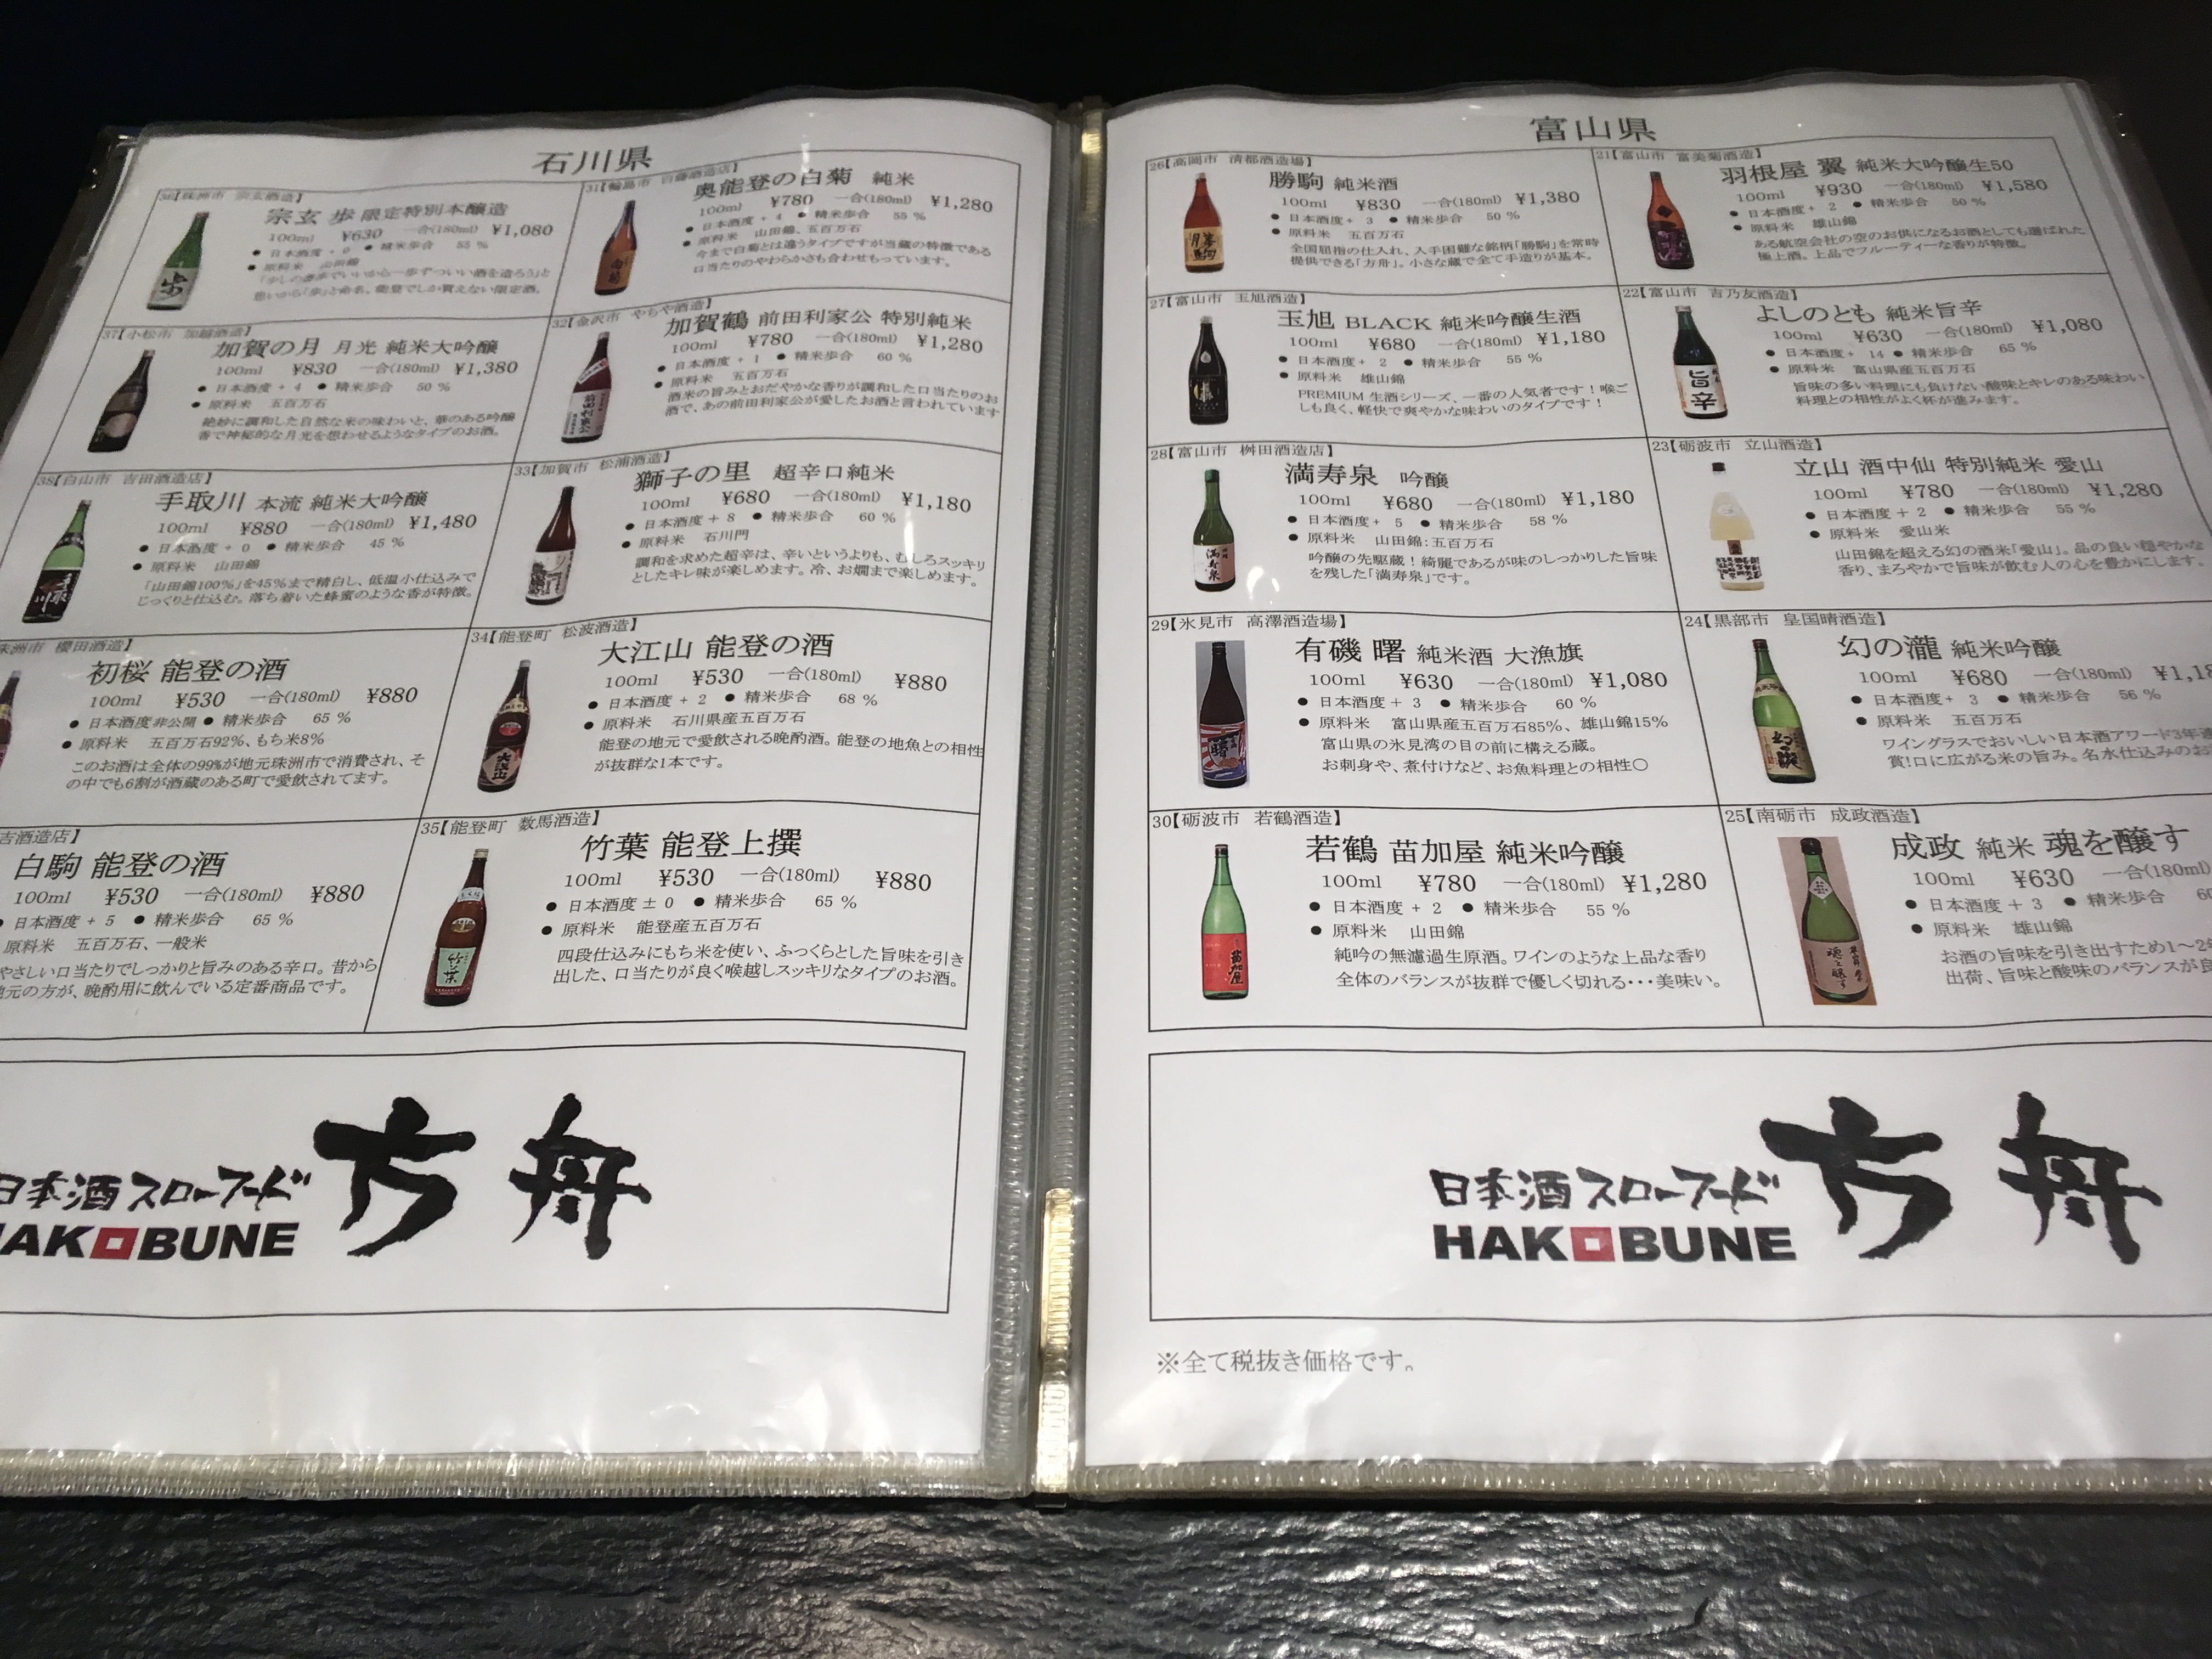 石川県
宗玄 歩 限定特別本醸造
100ml ¥630 一合(180ml) ¥1,080
● 日本酒度 + 0 ● 精米歩合 55 %
● 原料米 山田錦
37【小松市 加越酒造】
加賀の月 月光 純米大吟醸
100ml ¥830 一合(180ml) ¥1,380
● 日本酒度 + 4 ● 精米歩合 50 %
● 原料米 五百万石
絶妙に調和した自然な米の味わいと、華のある吟醸
香で神秘的な月光を想わせるようなタイプのお酒。
38【白山市 吉田酒造店】
手取川 本流 純米大吟醸
100ml ¥880 一合(180ml) ¥1,480
● 日本酒度 + 0 ● 精米歩合 45 %
● 原料米 山田錦
「山田錦100%」を45%まで精白し、低温小仕込みで
じっくりと仕込む。落ち着いた蜂蜜のような香が特徴。
珠洲市 櫻田酒造】
初桜 能登の酒
100ml ¥530 一合(180ml) ¥880
● 日本酒度非公開 ● 精米歩合 65 %
● 原料米 五百万石92%、もち米8%
このお酒は全体の99%が地元珠洲市で消費され、そ
の中でも6割が酒蔵のある町で愛飲されてます。
吉酒造店】
白駒 能登の酒
100ml ¥530 一合(180ml) ¥880
● 日本酒度 + 5 ● 精米歩合 65 %
原料米 五百万石、一般米
やさしい口当たりでしっかりと旨みのある辛口。昔から
元の方が、晩酌用に飲んでいる定番商品です。
31【輪島市 白藤酒造店】
奥能登の白菊 純米
100ml ¥780 一合(180ml) ¥1,280
● 日本酒度 + 4 ● 精米歩合 55 %
● 原料米 山田錦、五百万石
今まで白菊とは違うタイプですが当蔵の特徴である
口当たりのやわらかさも合わせもっています。
32【金沢市 やちや酒造】
加賀鶴 前田利家公 特別純米
100ml ¥780 一合(180ml) ¥1,280
● 日本酒度 + 1 ● 精米歩合 60 %
● 原料米 五百万石
酒米の旨みとおだやかな香りが調和した口当たりのお
酒で、あの前田利家公が愛したお酒と言われています
33【加賀市 松浦酒造】
獅子の里 超辛口純米
100ml ¥680 一合(180ml) ¥1,180
● 日本酒度 + 8 ● 精米歩合 60 %
● 原料米 石川門
調和を求めた超辛は、辛いというよりも、むしろスッキリ
としたキレ味が楽しめます。冷、お燗まで楽しめます。
34【能登町 松波酒造】
大江山 能登の酒
100ml ¥530 一合(180ml) ¥880
● 日本酒度 + 2 ● 精米歩合 68 %
● 原料米 石川県産五百万石
能登の地元で愛飲される晩酌酒。能登の地魚との相性
が抜群な1本です。
35【能登町 数馬酒造】
竹葉 能登上撰
100ml ¥530 一合(180ml) ¥880
● 日本酒度 ± 0 ● 精米歩合 65 %
● 原料米 能登産五百万石
四段仕込みにもち米を使い、ふっくらとした旨味を引き
出した、口当たりが良く喉越しスッキリなタイプのお酒。
日本酒スローフード 方舟
HAKOBUNE
富山県
26【高岡市 清都酒造場】
勝駒 純米酒
100ml ¥830 一合(180ml) ¥1,380
● 日本酒度+ 3 ● 精米歩合 50 %
● 原料米 五百万石
全国屈指の仕入れ、入手困難な銘柄「勝駒」を常時
提供できる「方舟」。小さな蔵で全て手造りが基本。
27【富山市 玉旭酒造】
玉旭 BLACK 純米吟醸生酒
100ml ¥680 一合(180ml) ¥1,180
● 日本酒度+ 2 ● 精米歩合 55 %
● 原料米 雄山錦
PREMIUM 生酒シリーズ、一番の人気者です！喉ご
しも良く、軽快で爽やかな味わいのタイプです！
28【富山市 桝田酒造店】
満寿泉 吟醸
100ml ¥680 一合(180ml) ¥1,180
● 日本酒度+ 5 ● 精米歩合 58 %
● 原料米 山田錦:五百万石
吟醸の先駆蔵！綺麗であるが味のしっかりした旨味
を残した「満寿泉」です。
29【氷見市 高澤酒造場】
有磯 曙 純米酒 大漁旗
100ml ¥630 一合(180ml) ¥1,080
● 日本酒度 + 3 ● 精米歩合 60 %
● 原料米 富山県産五百万石85%、雄山錦15%
富山県の氷見湾の目の前に構える蔵。
お刺身や、煮付けなど、お魚料理との相性〇
30【砺波市 若鶴酒造】
若鶴 苗加屋 純米吟醸
100ml ¥780 一合(180ml) ¥1,280
● 日本酒度 + 2 ● 精米歩合 55 %
● 原料米 山田錦
純吟の無濾過生原酒。ワインのような上品な香り
全体のバランスが抜群で優しく切れる・・・美味い。
21【富山市 富美菊酒造】
羽根屋 翼 純米大吟醸生50
100ml ¥930 一合(180ml) ¥1,580
● 日本酒度+ 2 ● 精米歩合 50 %
● 原料米 雄山錦
ある航空会社の空のお供になるお酒としても選ばれた
極上酒。上品でフルーティーな香りが特徴。
22【富山市 吉乃友酒造】
よしのとも 純米旨辛
100ml ¥630 一合(180ml) ¥1,080
● 日本酒度+ 14 ● 精米歩合 65 %
● 原料米 富山県産五百万石
旨味の多い料理にも負けない酸味とキレのある味わい
料理との相性がよく杯が進みます。
23【砺波市 立山酒造】
立山 酒中仙 特別純米 愛山
100ml ¥780 一合(180ml) ¥1,280
● 日本酒度 + 2 ● 精米歩合 55 %
● 原料米 愛山米
山田錦を超える幻の酒米「愛山」。品の良い穏やかな
香り、まろやかで旨味が飲む人の心を豊かにします。
24【黒部市 皇国晴酒造】
幻の瀧 純米吟醸
100ml ¥680 一合(180ml) ¥1,18
● 日本酒度+ 3 ● 精米歩合 56 %
● 原料米 五百万石
ワイングラスでおいしい日本酒アワード3年連
賞!口に広がる米の旨み。名水仕込みのお
25【南砺市 成政酒造】
成政 純米 魂を醸す
100ml ¥630 一合(180ml)
● 日本酒度 + 3 ● 精米歩合 60
● 原料米 雄山錦
お酒の旨味を引き出すため1～2年
出荷、旨味と酸味のバランスが良
日本酒スローフード 方舟
HAKOBUNE
※全て税抜き価格です。